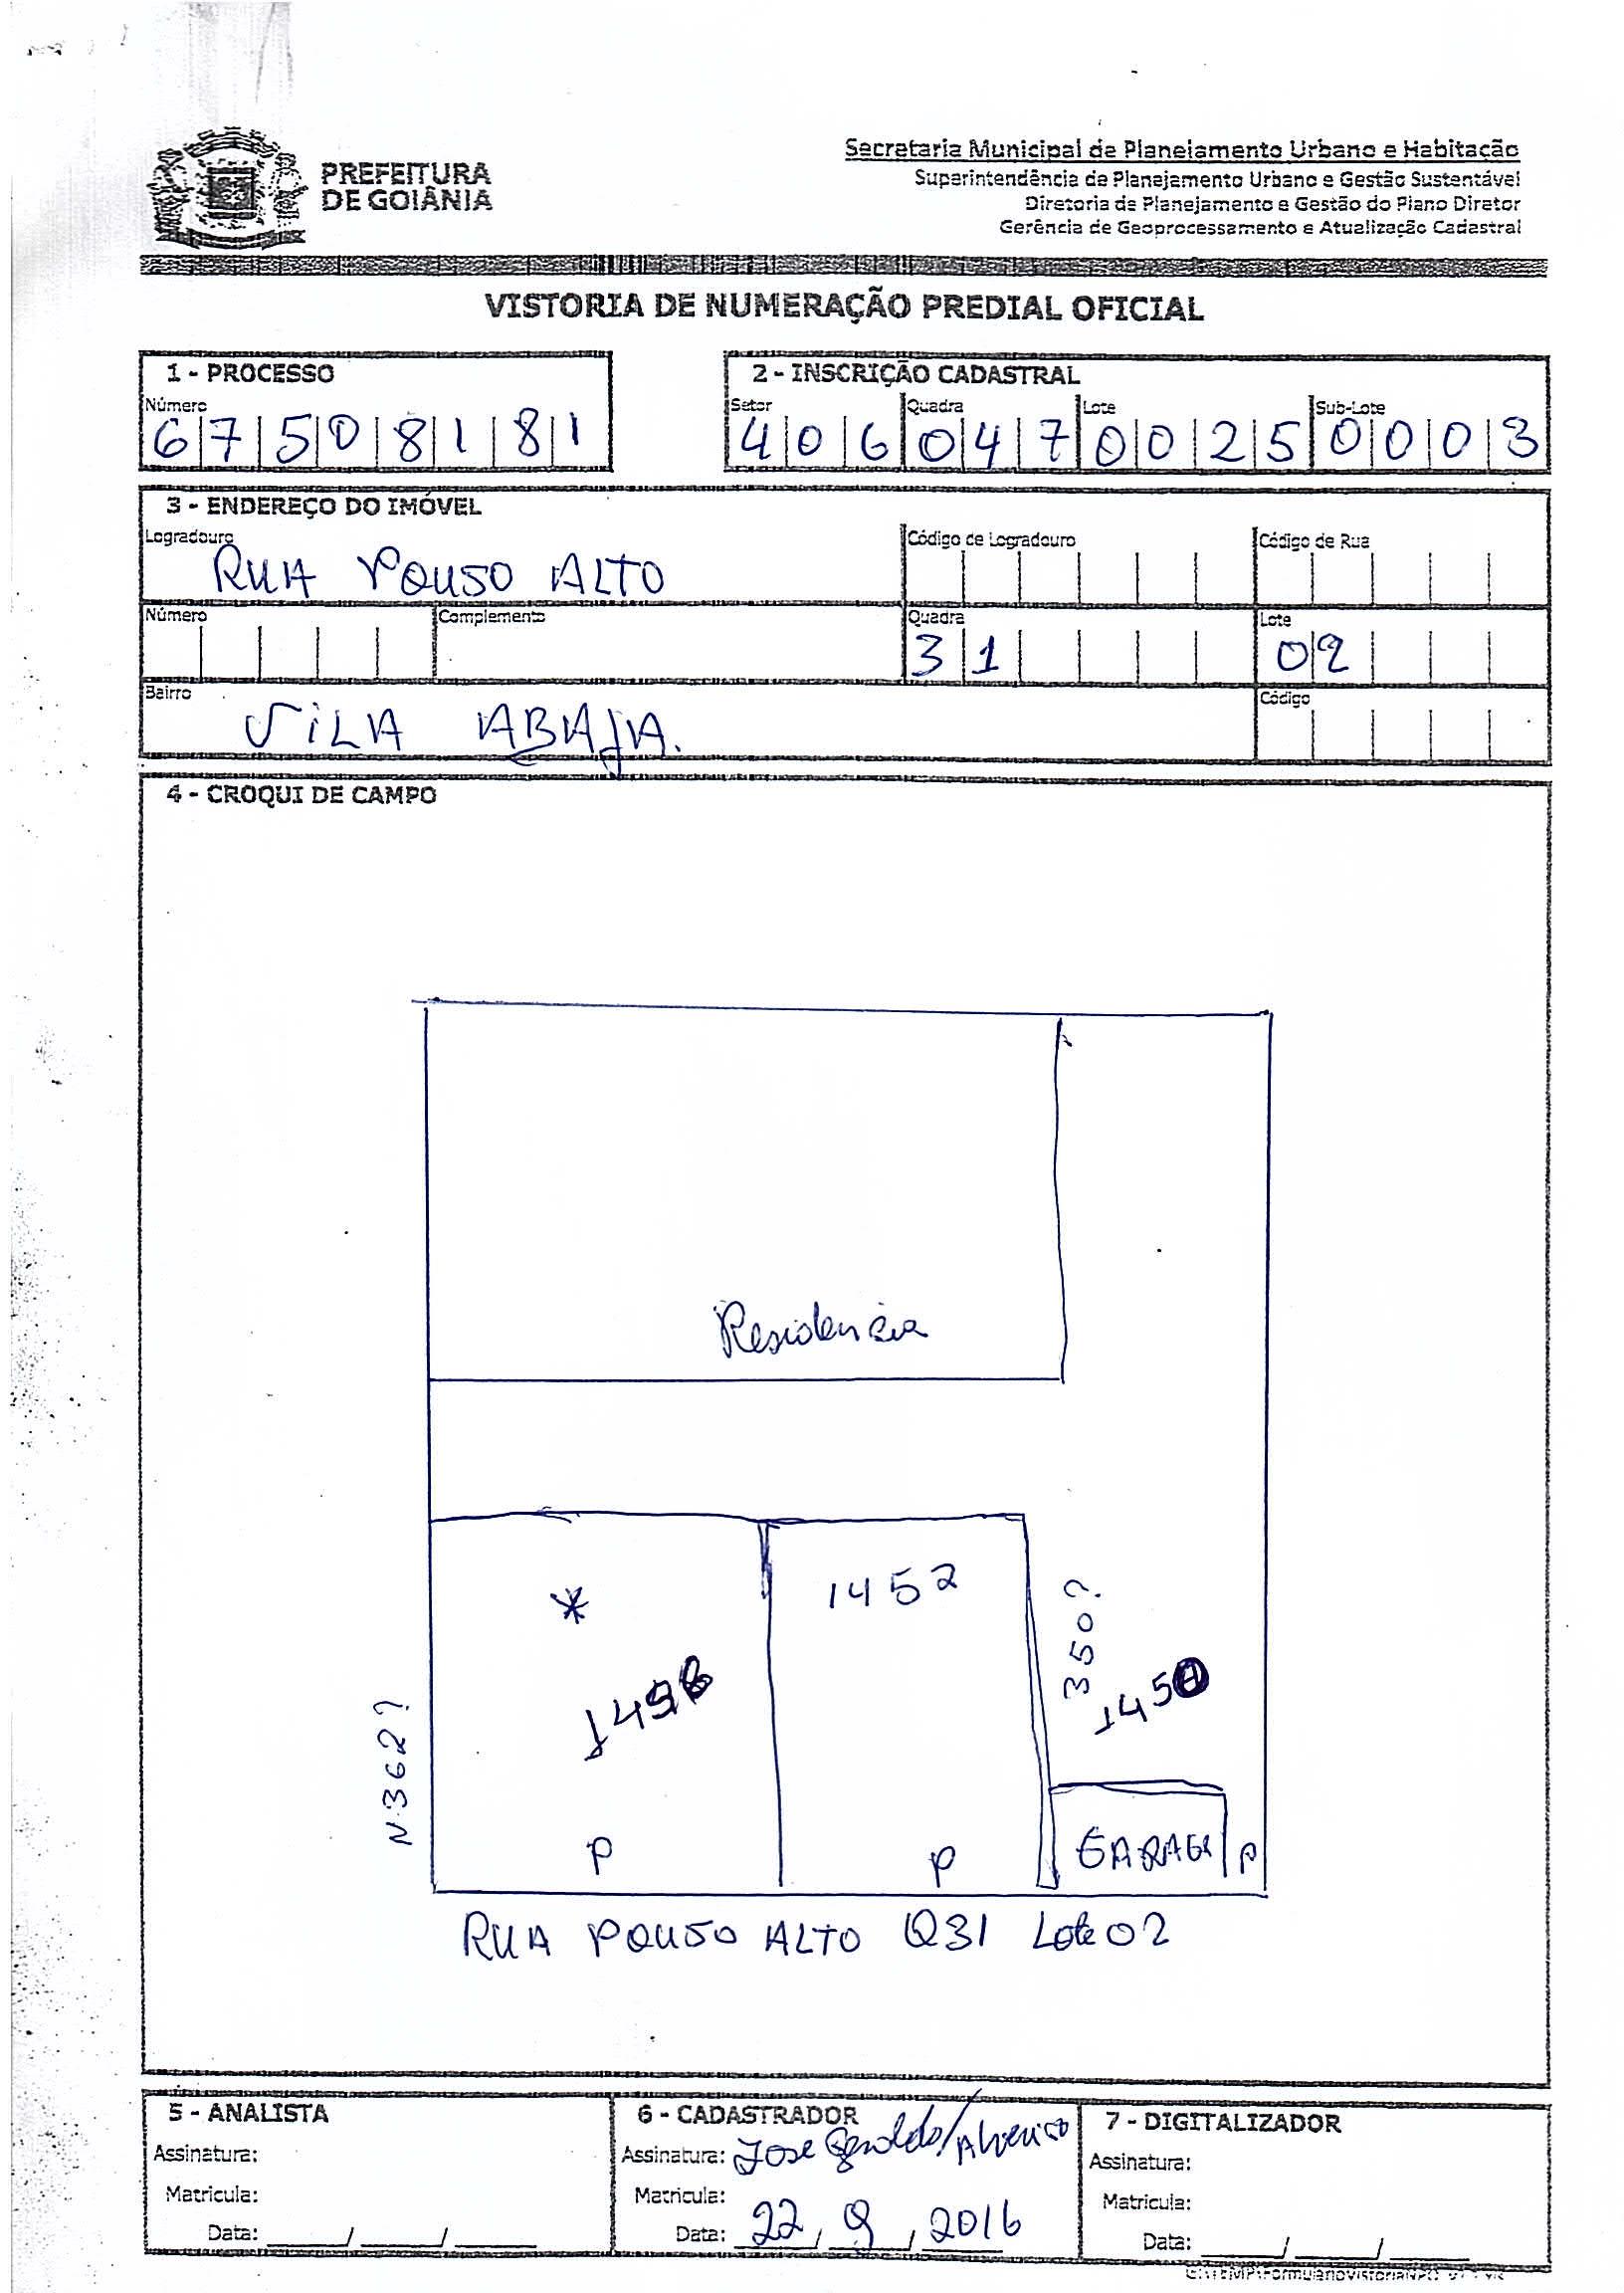 PREFEITURA
DE GOIÂNIA
Secretaria Municipal de Planejamento Urbano e Habitação
Superintendência de Planejamento Urbano e Gestão Sustentável
Diretoria de Planejamento e Gestão do Plano Diretor
Gerência de Geoprocessamento e Atualização Cadastral
VISTORIA DE NUMERAÇÃO PREDIAL OFICIAL
1 - PROCESSO
Número
6 7 5 0 8 1 8 1
2 - INSCRIÇÃO CADASTRAL
Setor Quadra Lote Sub-Lote
4 0 6 0 4 7 0 0 2 5 0 0 0 3
3 - ENDEREÇO DO IMÓVEL
Logradouro Código de Logradouro Código de Rua
RUA POUSO ALTO
Número Complemento Quadra Lote
3 1 02
Bairro Código
VILA ABAJA.
4 - CROQUI DE CAMPO
Residencia
*
1452
350?
1450
N.362?
P
P
GARAGE
P
RUA POUSO ALTO Q31 Lote 02
5 - ANALISTA
Assinatura:
Matricula:
Data: ____/____/____
6 - CADASTRADOR
Assinatura: Jose Geraldo/
Matricula:
Data: 22/9/2016
7 - DIGITALIZADOR
Assinatura:
Matricula:
Data: ____/____/____